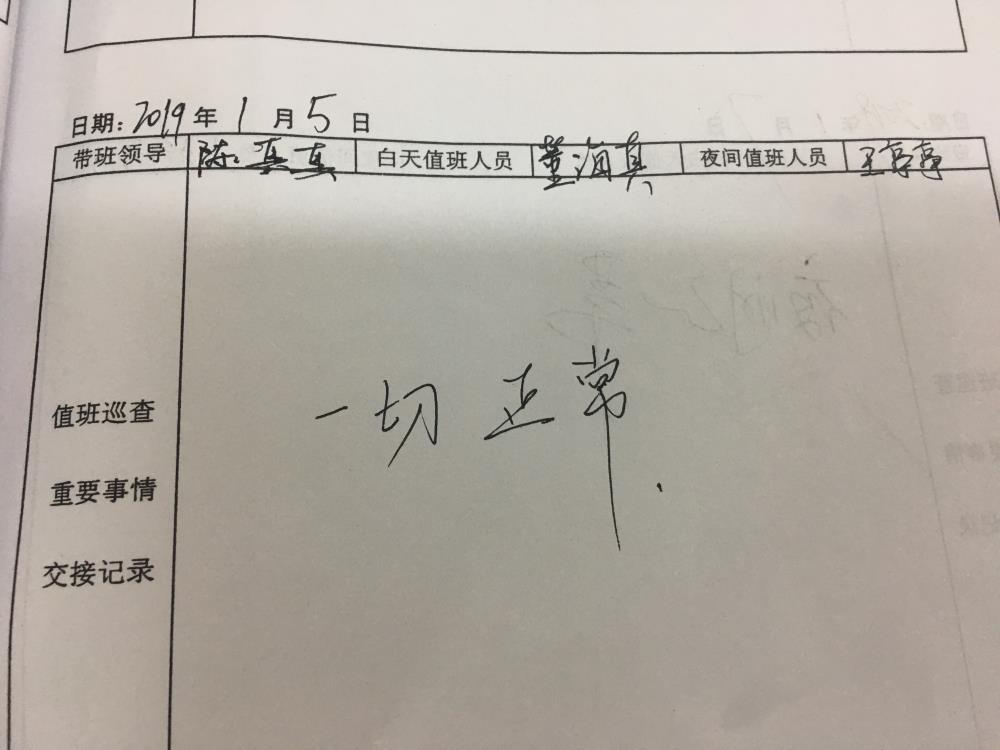 日期：2019年1月5日
带班领导 陈真真 白天值班人员 董海真 夜间值班人员 王亭亭
一切正常.
值班巡查
重要事情
交接记录